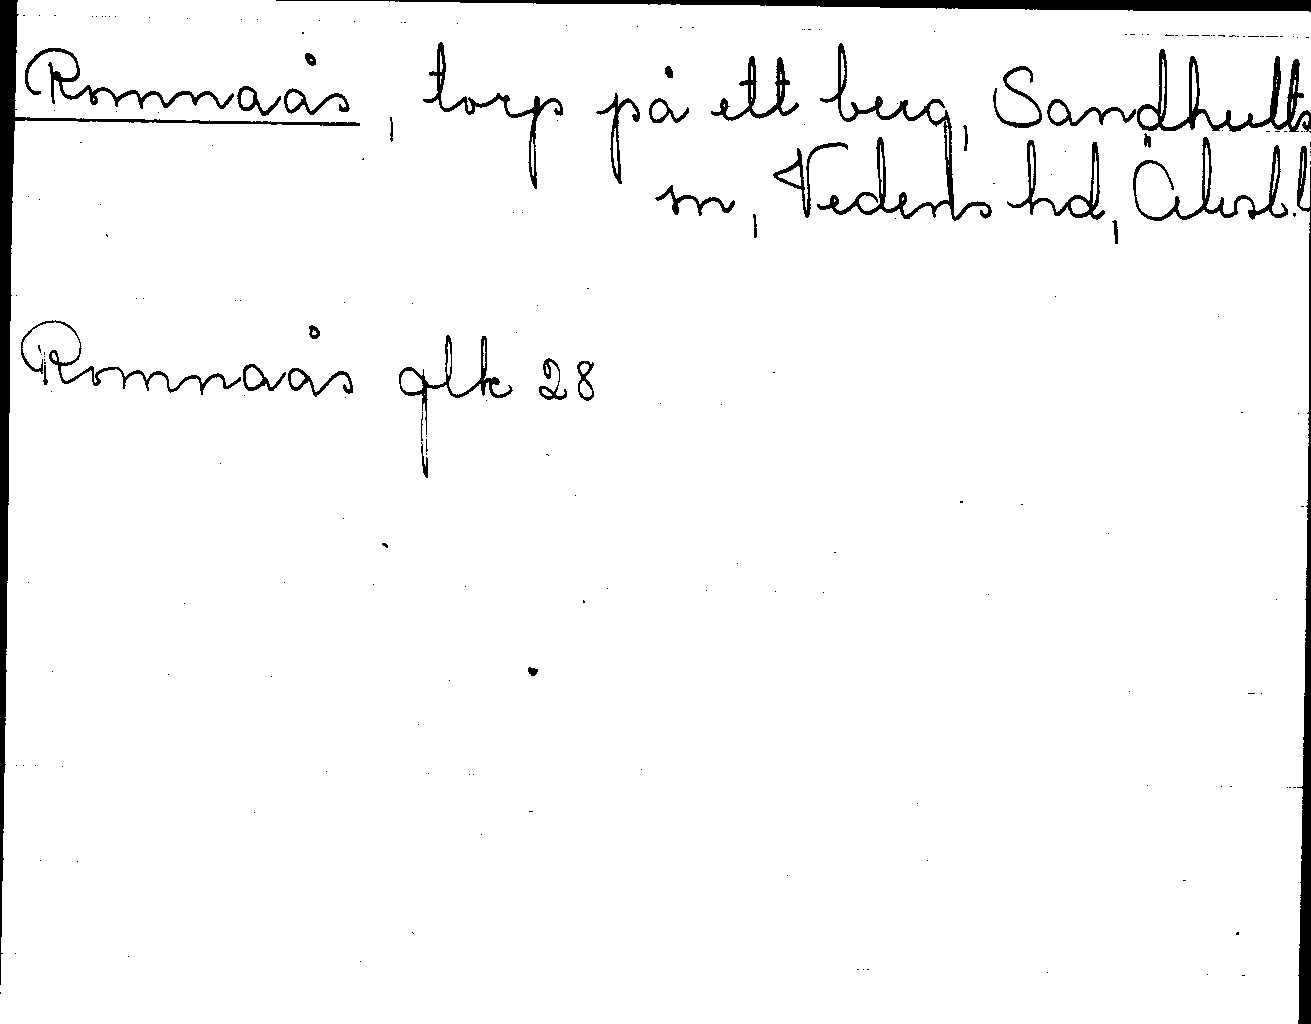 Romnaås, torp på ett berg, Sandhults
sn, Vedens hd, Älvsb. l
Romnaås glk 28